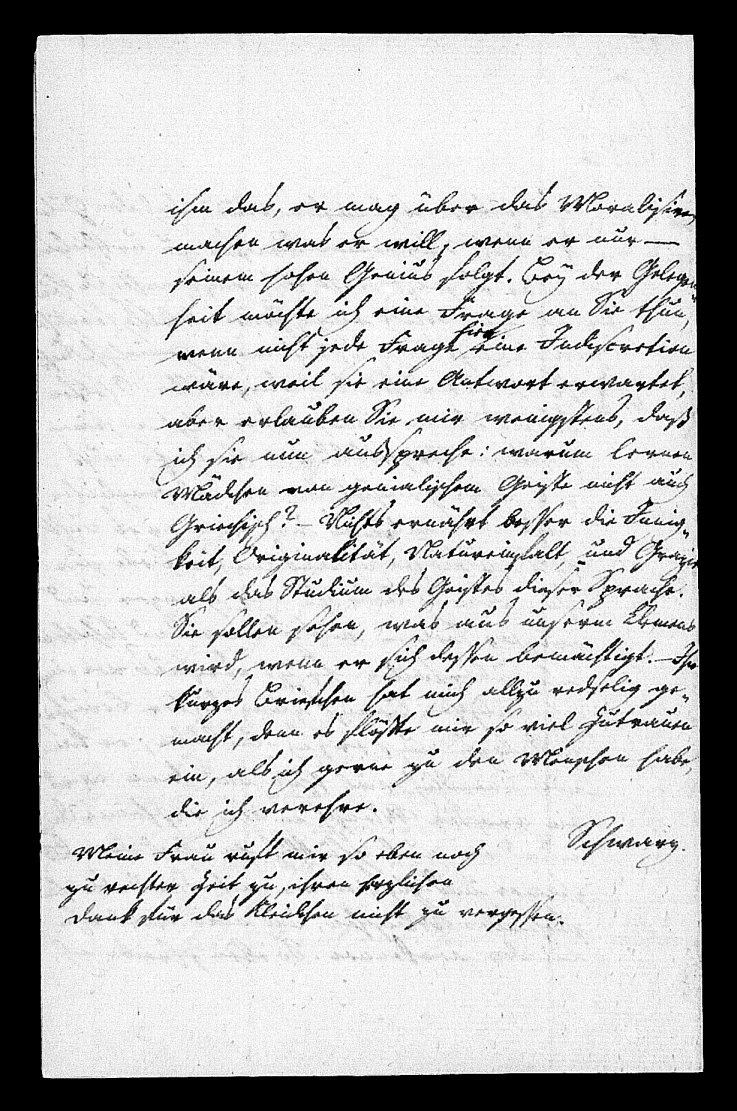 ihm das, er mag über das Moralisiren
machen was er will, wenn er nur —
seinem hohen Genius folgt. Bey der Gelegen„
heit möchte ich eine Frage an Sie thun,
wenn nicht jede Frage hier eine Indiscretion
wäre, weil sie eine Antwort erwartet,
aber erlauben Sie mir wenigstens, daß
ich sie nun ausspreche: warum lernen
Mädchen von genialischem Geiste nicht auch
Griechisch? – Nichts ernährt besser die Innig„
keit, Originalität, Natureinfalt, und Grazie
als das Studium des Geistes dieser Sprache.
Sie sollen sehen, was aus unserm Klemens
wird, wenn er sich dessen bemächtigt. – Ihr
kurzes Briefchen hat mich allzu redselig ge„
macht, denn es flößte mir so viel Zutrauen
ein, als ich gerne zu den Menschen habe,
die ich verehre.
Schwarz.
Meine Frau ruft mir so eben noch
zu rechter Zeit zu, ihren herzlichen
Dank für das Kleidchen nicht zu vergessen.